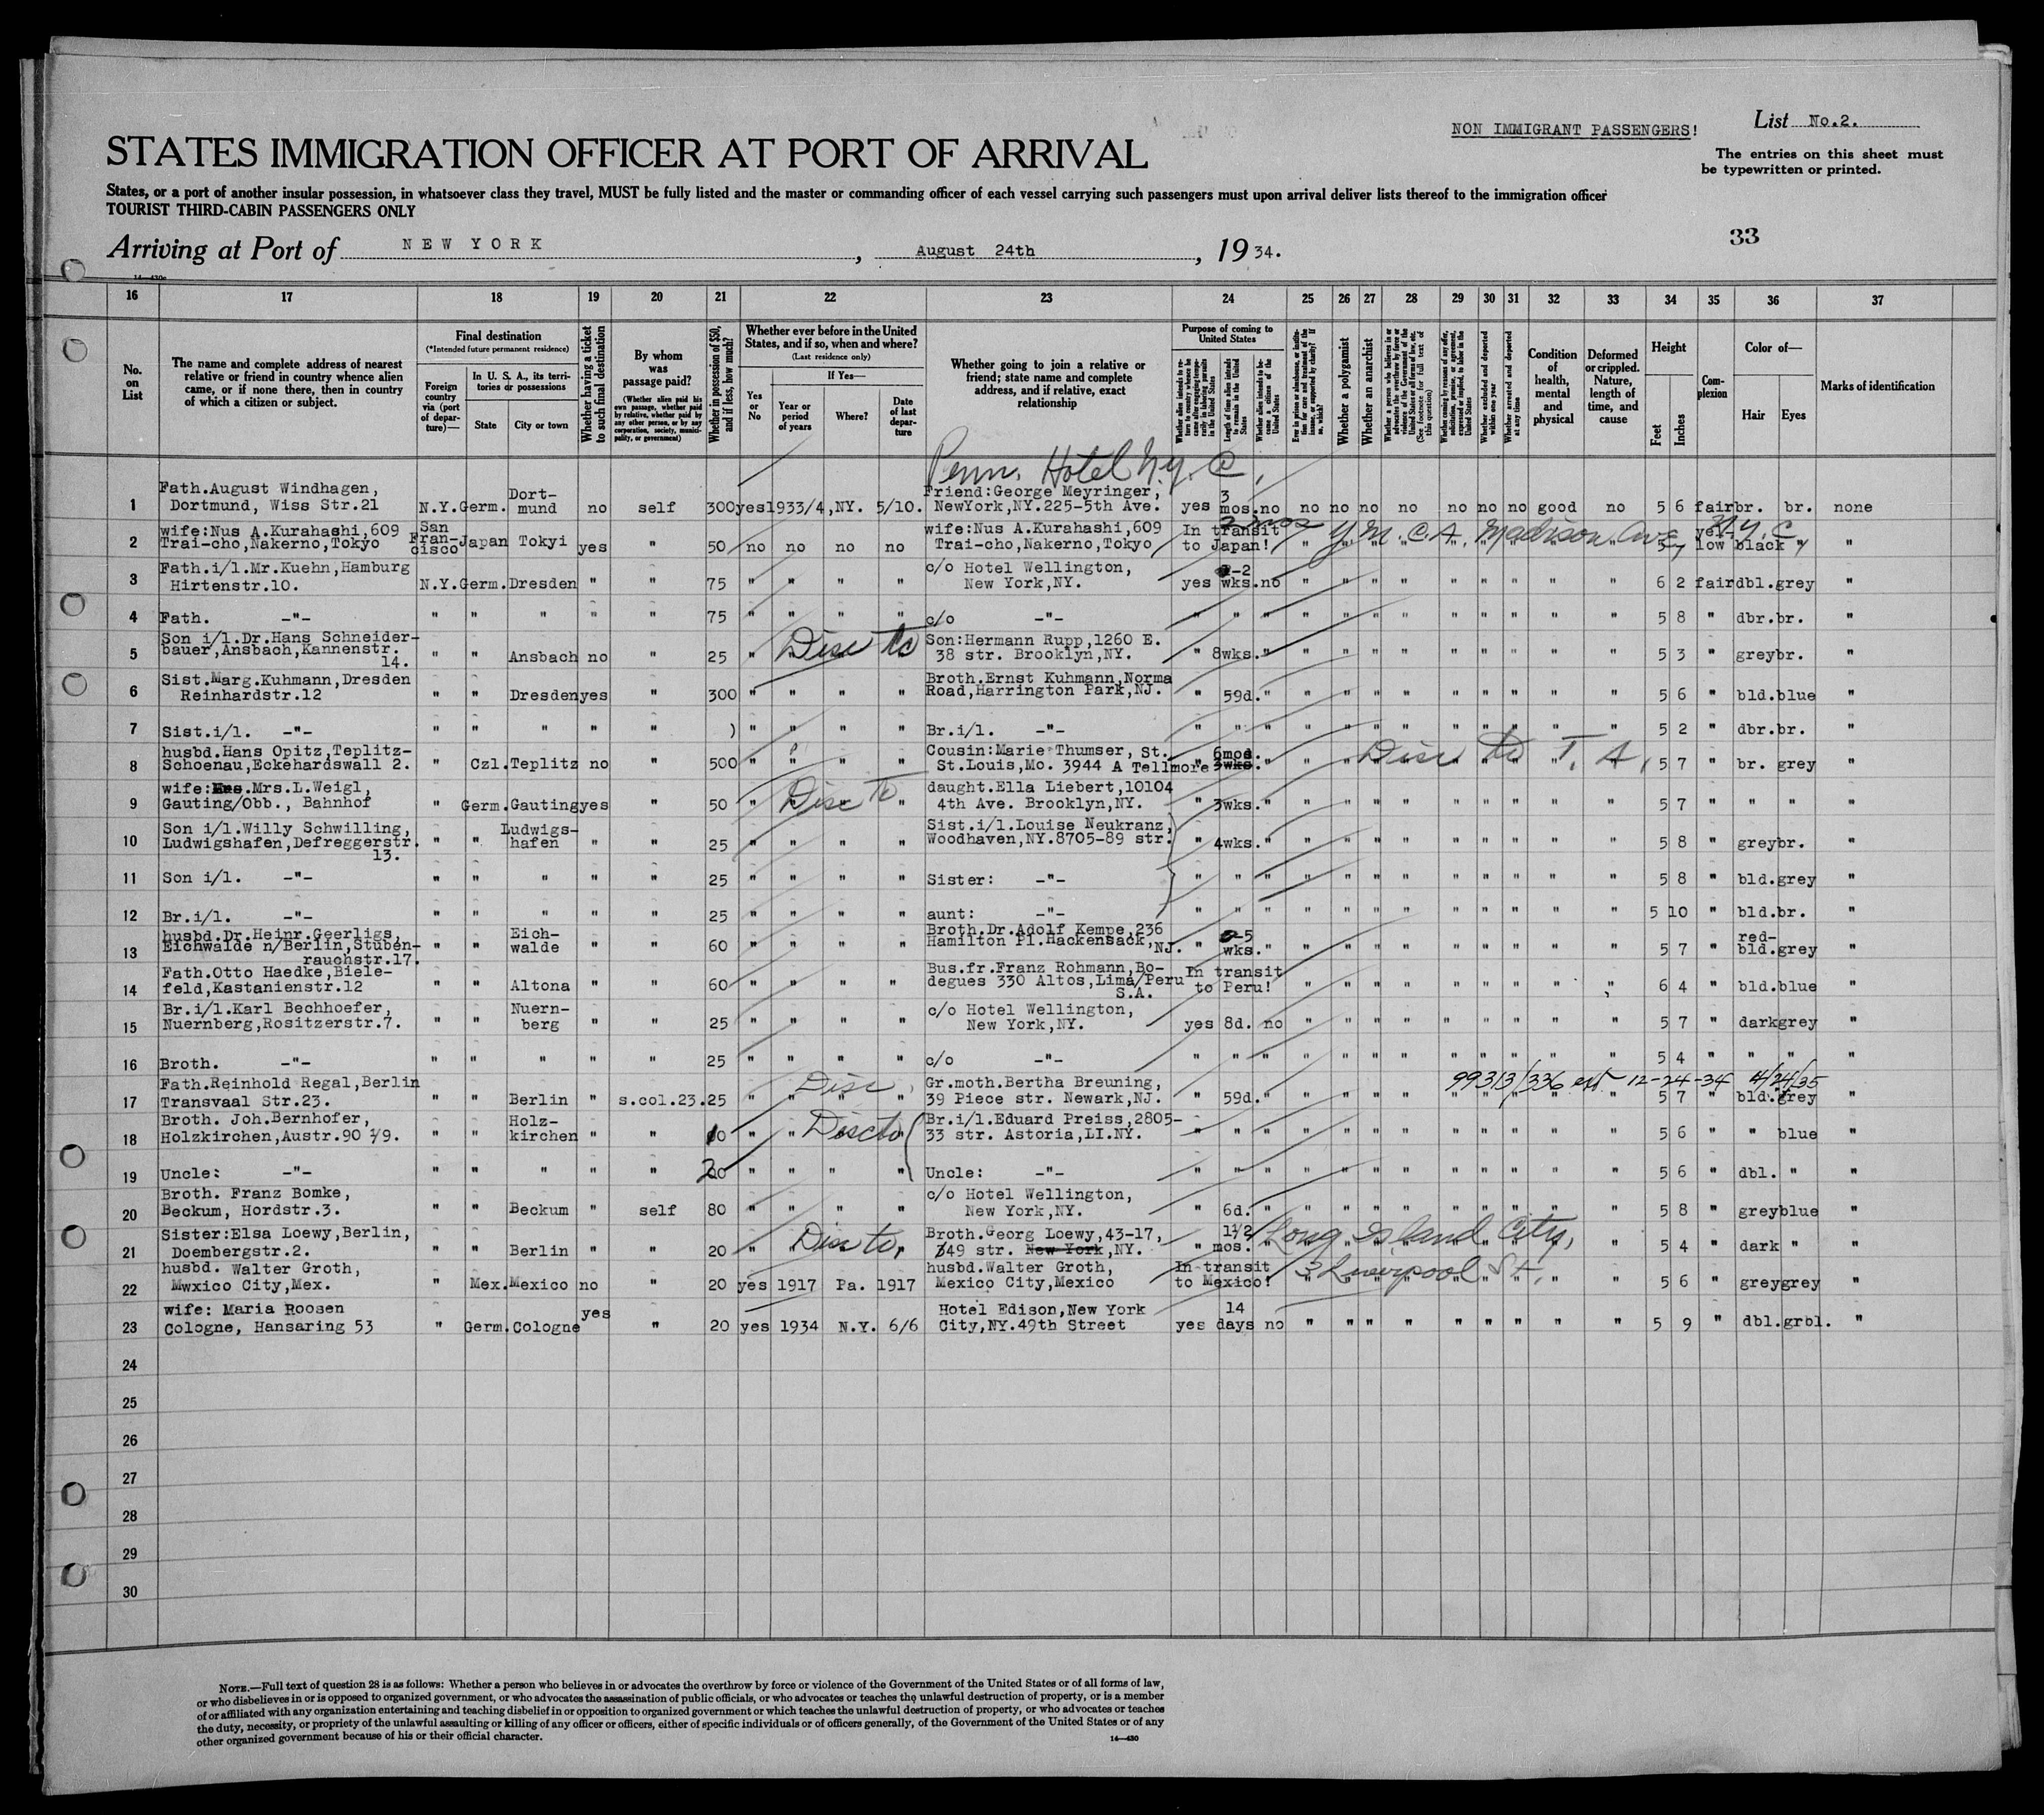 NON IMMIGRANT PASSENGERS!
List No.2.
STATES IMMIGRATION OFFICER AT PORT OF ARRIVAL
The entries on this sheet must
be typewritten or printed.
States, or a port of another insular possession, in whatsoever class they travel, MUST be fully listed and the master or commanding officer of each vessel carrying such passengers must upon arrival deliver lists thereof to the immigration officer
TOURIST THIRD-CABIN PASSENGERS ONLY
Arriving at Port of NEW YORK, August 24th, 1934.
33
14—430c
16 17 18 19 20 21 22 23 24 25 26 27 28 29 30 31 32 33 34 35 36 37
No. on List
The name and complete address of nearest
relative or friend in country whence alien
came, or if none there, then in country
of which a citizen or subject.
Final destination
(*Intended future permanent residence)
Foreign country via (port of departure)—
In U. S. A., its territories or possessions
State
City or town
Whether having a ticket to such final destination
By whom was passage paid?
(Whether alien paid his own passage, whether paid by relative, whether paid by any other person, or by any corporation, society, municipality, or government)
Whether in possession of $50, and if less, how much?
Whether ever before in the United States, and if so, when and where?
(Last residence only)
Yes or No
If Yes—
Year or period of years
Where?
Date of last departure
Whether going to join a relative or
friend; state name and complete
address, and if relative, exact
relationship
Purpose of coming to United States
Length of time alien intends to remain in the United States
Whether alien intends to become a citizen of the United States
Whether a polygamist
Whether an anarchist
Whether excluded and deported within one year
Whether arrested and deported at any time
Condition of health, mental and physical
Deformed or crippled. Nature, length of time, and cause
Height
Feet
Inches
Complexion
Color of—
Hair
Eyes
Marks of identification
Penn. Hotel N.Y.C.
1 Fath.August Windhagen, Dortmund, Wiss Str.21 N.Y. Germ. Dort-mund no self 300 yes 1933/4, NY. 5/10. Friend:George Meyringer, NewYork,NY.225-5th Ave. yes 3 mos. no no no no no no no no good no 5 6 fair br. br. none
2 wife:Nus A.Kurahashi,609 Trai-cho,Nakerno,Tokyo San Fran-cisco Japan Tokyi yes " 50 no no no no wife:Nus A.Kurahashi,609 Trai-cho,Nakerno,Tokyo In transit to Japan! 2 mos Y.M.C.A. Madison Ave N.Y.C. " " " " " " " " " 5 7 yel-low black " "
3 Fath.i/l.Mr.Kuehn,Hamburg Hirtenstr.10. N.Y. Germ. Dresden " " 75 " " " " c/o Hotel Wellington, New York,NY. yes -2 wks. no " " " " " " " " " 6 2 fair dbl. grey "
4 Fath. -"- " " " " " 75 " " " " c/o -"- " " " " " " " " " " " " " 5 8 " dbr. br. "
5 Son i/l.Dr.Hans Schneider-bauer,Ansbach,Kannenstr. 14. " " Ansbach no " 25 " " " " Disc to Son:Hermann Rupp,1260 E. 38 str. Brooklyn,NY. " 8wks. " " " " " " " " " " 5 3 " grey br. "
6 Sist.Marg.Kuhmann,Dresden Reinhardstr.12 " " Dresden yes " 300 " " " " Broth.Ernst Kuhmann,Norma Road,Harrington Park,NJ. " 59d. " " " " " " " " " " 5 6 " bld. blue "
7 Sist.i/l. -"- " " " " " ) " " " " Br.i/l. -"- " " " " " " " " " " " " 5 2 " dbr. br. "
8 husbd.Hans Opitz,Teplitz-Schoenau,Eckehardswall 2. " Czl. Teplitz no " 500 " " " " Cousin:Marie Thumser, St. St.Louis,Mo. 3944 A Tellmore " 6mos. 3wks. " Disc to T. A. " " " " " " " " " 5 7 " br. grey "
9 wife: .Mrs.L.Weigl, Gauting/Obb., Bahnhof " Germ. Gauting yes " 50 " " " " Disc to daught.Ella Liebert,10104 4th Ave. Brooklyn,NY. " 3wks. " " " " " " " " " " 5 7 " " " "
10 Son i/l.Willy Schwilling, Ludwigshafen,Defreggerstr. 13. " " Ludwigs-hafen " " 25 " " " " Sist.i/l.Louise Neukranz, Woodhaven,NY.8705-89 str. " 4wks. " " " " " " " " " " 5 8 " grey br. "
11 Son i/l. -"- " " " " " 25 " " " " Sister: -"- " " " " " " " " " " " " 5 8 " bld. grey "
12 Br.i/l. -"- " " " " " 25 " " " " aunt: -"- " " " " " " " " " " " " 5 10 " bld. br. "
13 husbd.Dr.Heinr.Geerligs, Eichwalde n/Berlin,Stuben-rauchstr.17. " " Eich-walde " " 60 " " " " Broth.Dr.Adolf Kempe,236 Hamilton Pl.Hackensack,NJ. " -5 wks. " " " " " " " " " " 5 7 " red-bld. grey "
14 Fath.Otto Haedke,Biele-feld,Kastanienstr.12 " " Altona " " 60 " " " " Bus.fr.Franz Rohmann,Bo-degues 330 Altos,Lima/Peru S.A. In transit to Peru! " " " " " " " " " 6 4 " bld. blue "
15 Br.i/l.Karl Bechhoefer, Nuernberg,Rositzerstr.7. " " Nuern-berg " " 25 " " " " c/o Hotel Wellington, New York,NY. yes 8d. no " " " " " " " " " 5 7 " dark grey "
16 Broth. -"- " " " " " 25 " " " " c/o -"- " " " " " " " " " " " " 5 4 " " " "
99313/336 ext 12-24-34 4/24/35
17 Fath.Reinhold Regal,Berlin Transvaal Str.23. " " Berlin " s.col.23. 25 " " " " Disc Gr.moth.Bertha Breuning, 39 Piece str. Newark,NJ. " 59d. " " " " " " " " " " 5 7 " bld. grey "
18 Broth. Joh.Bernhofer, Holzkirchen,Austr.90 /9. " " Holz-kirchen " " 10 " " " " Disc to Br.i/l.Eduard Preiss,2805-33 str. Astoria,LI.NY. " " " " " " " " " " " " 5 6 " " blue "
19 Uncle: -"- " " " " " 20 " " " " Uncle: -"- " " " " " " " " " " " " 5 6 " dbl. " "
20 Broth. Franz Bomke, Beckum, Hordstr.3. " " Beckum " self 80 " " " " c/o Hotel Wellington, New York,NY. " 6d. " " " " " " " " " " 5 8 " grey blue "
21 Sister:Elsa Loewy,Berlin, Doembergstr.2. " " Berlin " " 20 " " " " Disc to, Broth.Georg Loewy,43-17, 49 str. New York,NY. " 1½ mos. " Long Island City, " " " " " " " " " 5 4 " dark " "
22 husbd. Walter Groth, Mwxico City,Mex. " Mex. Mexico no " 20 yes 1917 Pa. 1917 husbd.Walter Groth, Mexico City,Mexico In transit to Mexico! 3 Liverpool St. " " " " " " " " " 5 6 " grey grey "
23 wife: Maria Roosen Cologne, Hansaring 53 " Germ. Cologne yes " 20 yes 1934 N.Y. 6/6 Hotel Edison,New York City,NY.49th Street yes 14 days no " " " " " " " " " 5 9 " dbl. grbl. "
24
25
26
27
28
29
30
NOTE.—Full text of question 28 is as follows: Whether a person who believes in or advocates the overthrow by force or violence of the Government of the United States or of all forms of law,
or who disbelieves in or is opposed to organized government, or who advocates the assassination of public officials, or who advocates or teaches the unlawful destruction of property, or is a member
of or affiliated with any organization entertaining and teaching disbelief in or opposition to organized government or which teaches the unlawful destruction of property, or who advocates or teaches
the duty, necessity, or propriety of the unlawful assaulting or killing of any officer or officers, either of specific individuals or of officers generally, of the Government of the United States or of any
other organized government because of his or their official character.
14—430